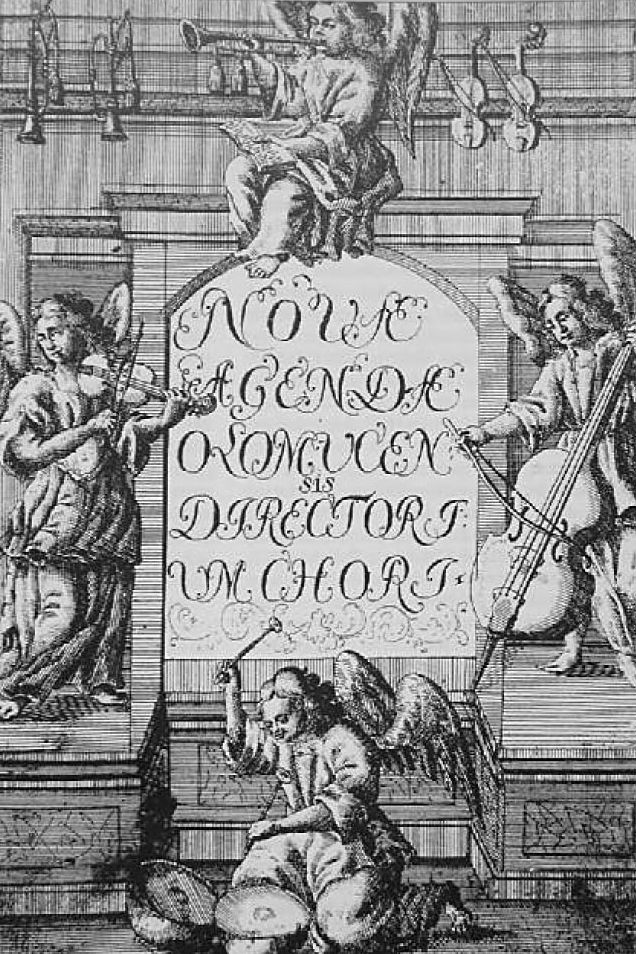 NOVÆ
AGENDÆ
OLOMUCEN
SIS
DIRECTORI
UM CHORI.